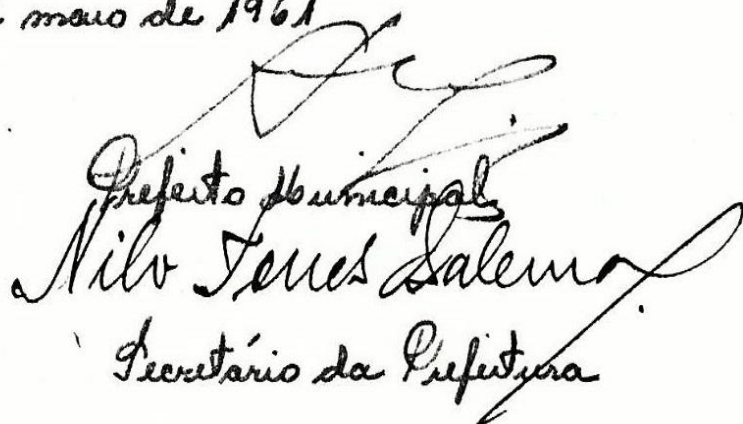 maio de 1961
Prefeito Municipal
Nilo Torres Salerno
Secretário da Prefeitura